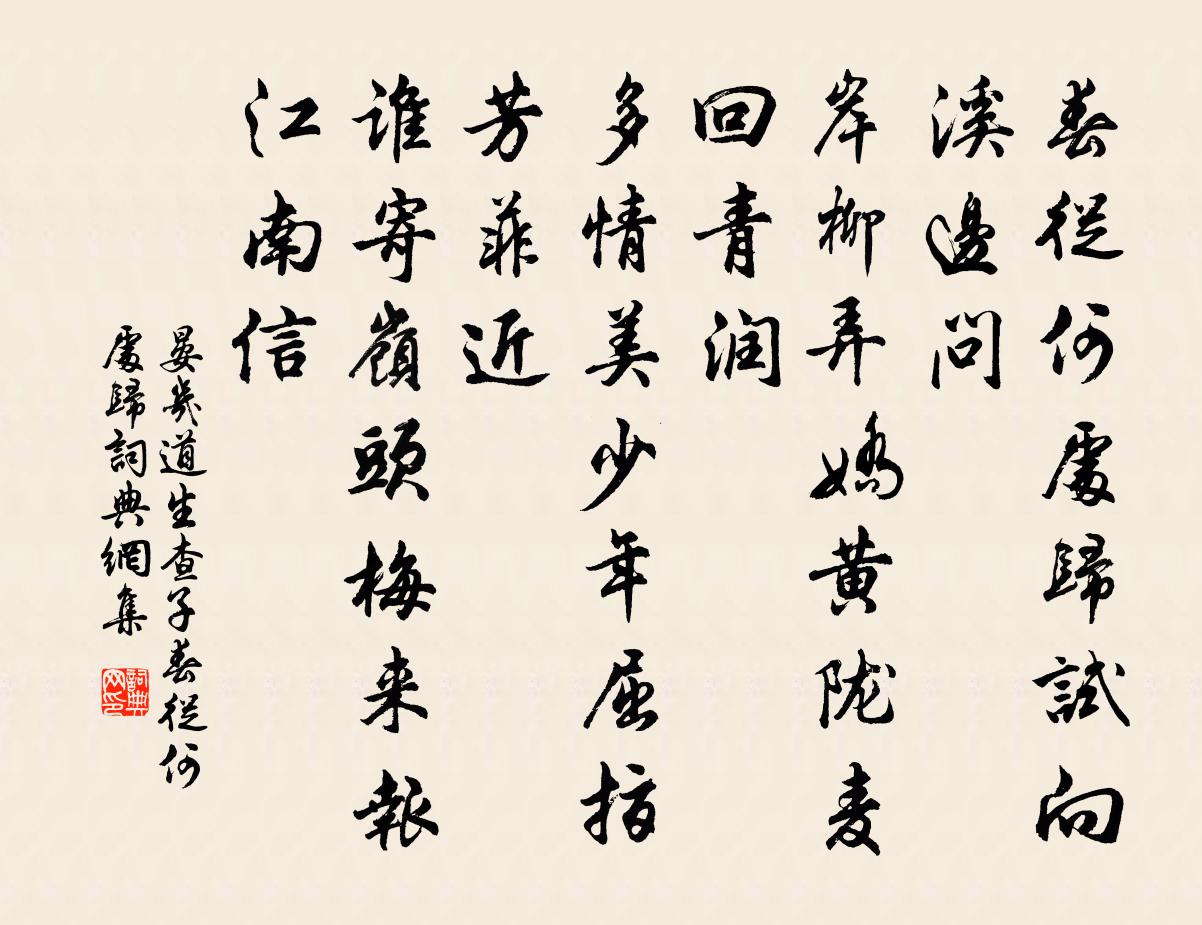 春從何處歸試向
溪邊问
岸柳弄嬌黄陇麦
回青润
多情美少年屈指
芳菲近
谁寄嶺頭梅来報
江南信
晏幾道生查子春從何
處歸詞典網集
詞典
网印